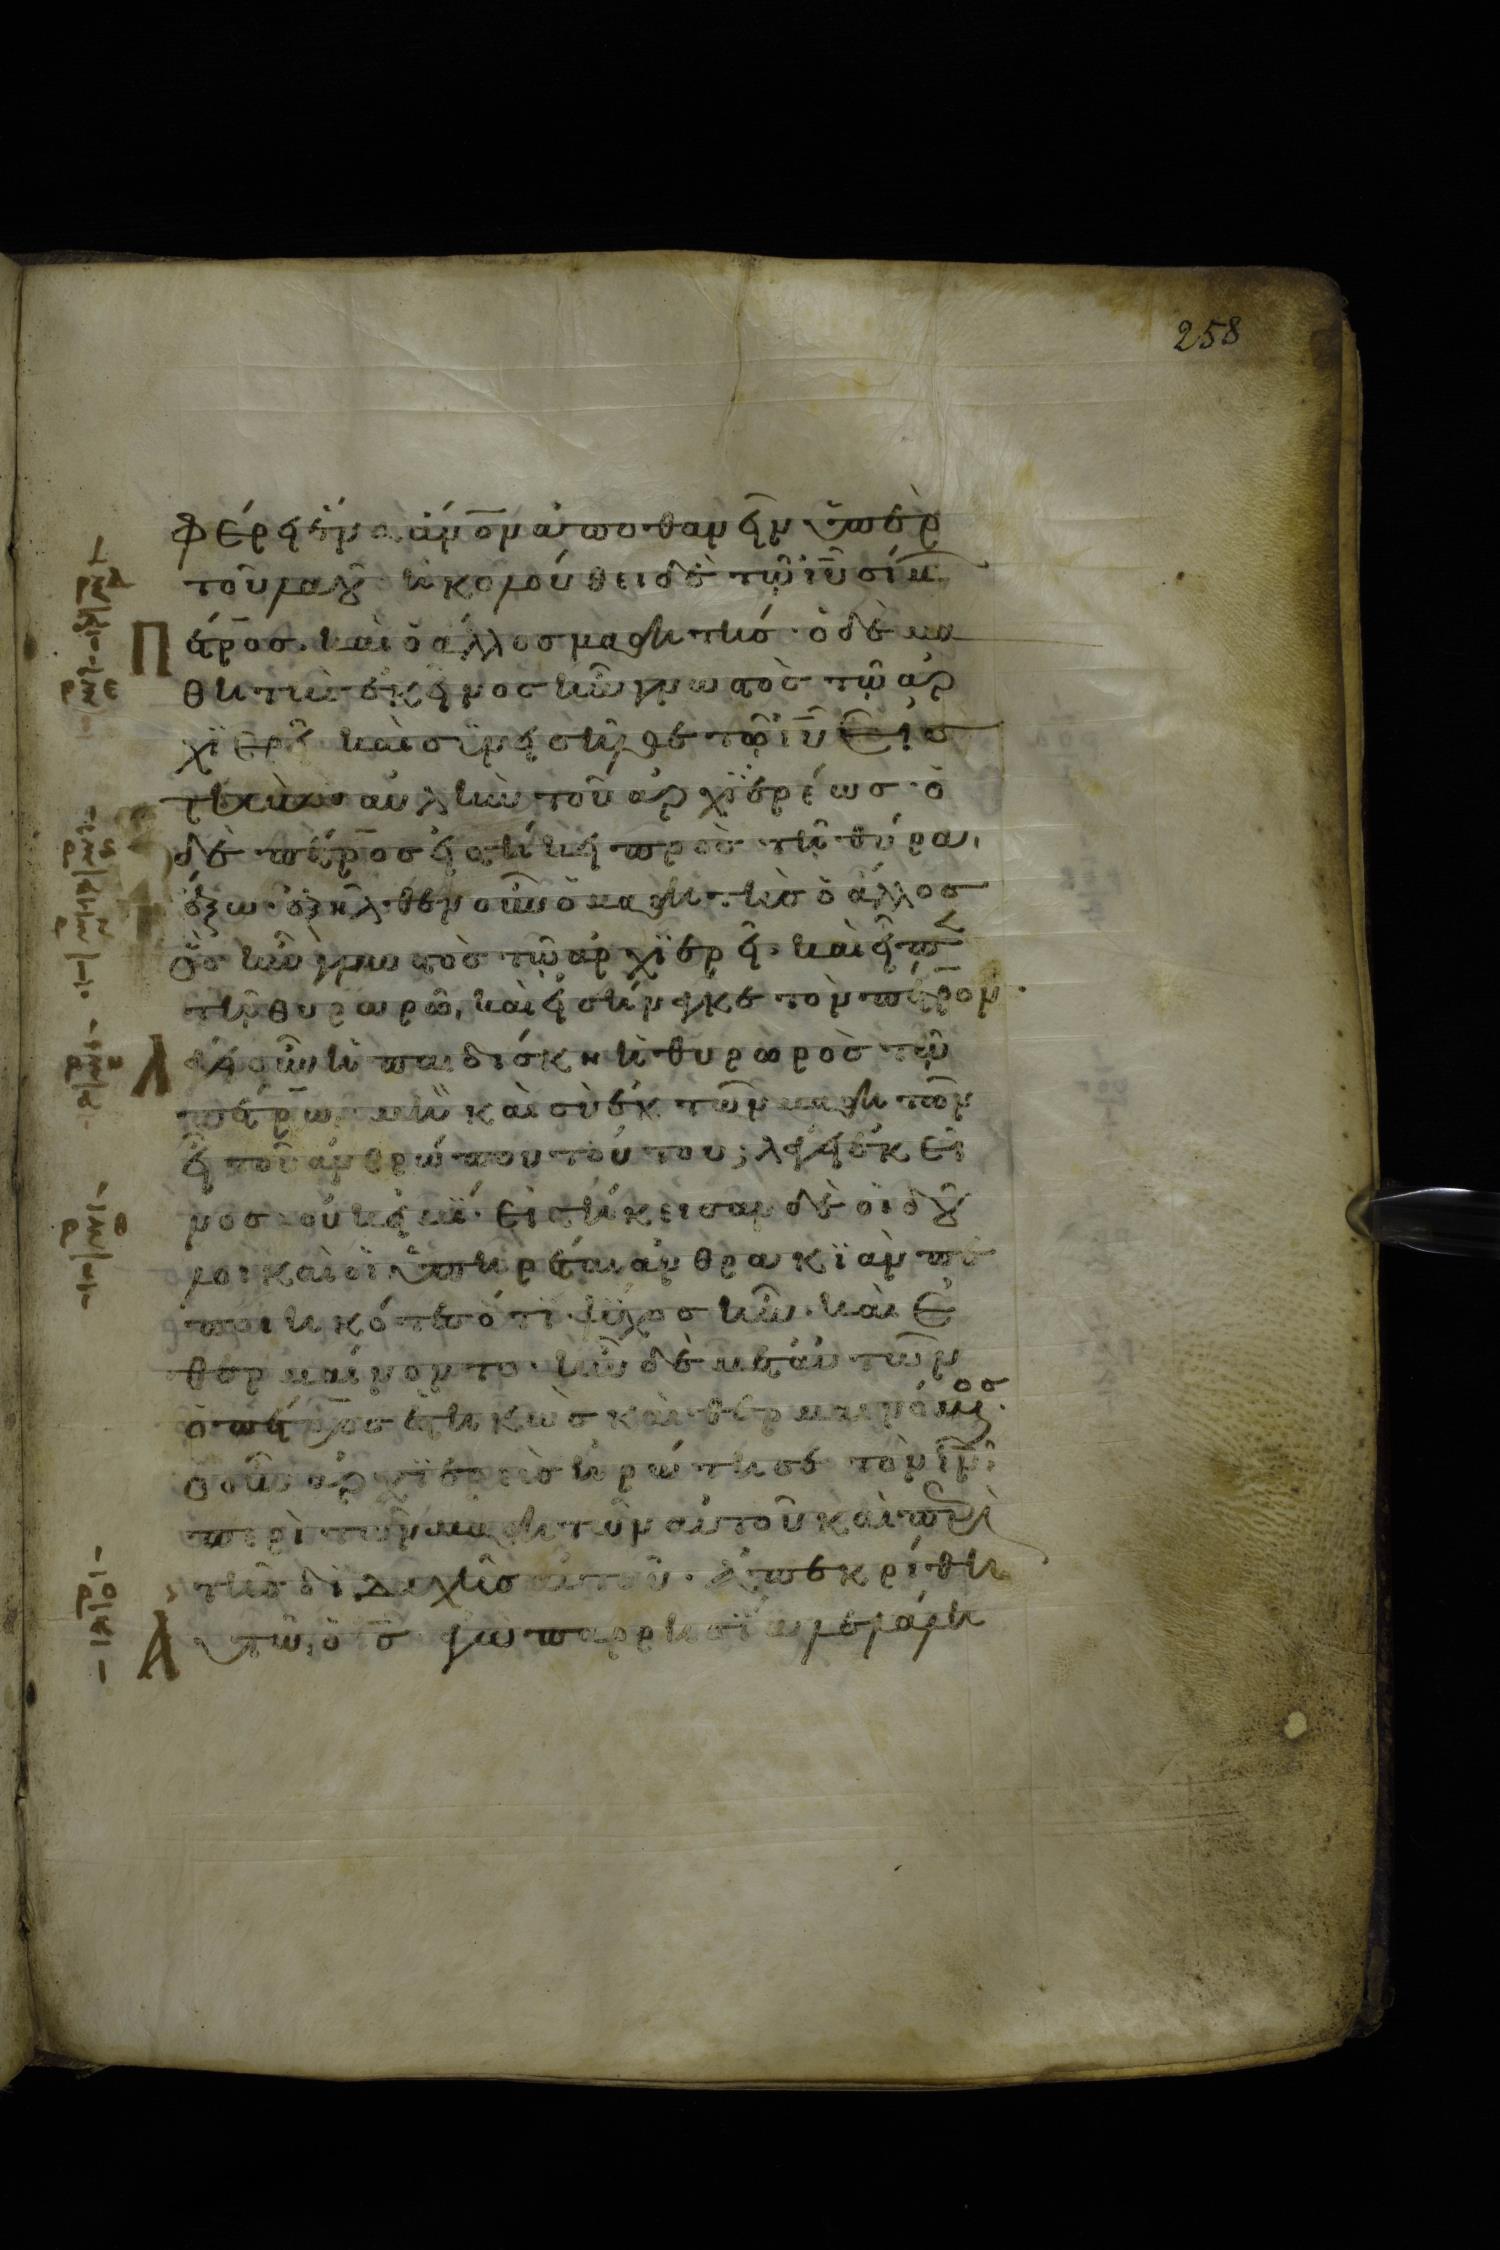 258
φέρει ἕνα ἄνον ἀποθανεῖν ὑπὲρ
τοῦ λαοῦ ἠκολούθει δὲ τῶ ιῦ σίμ
πέτρος. καὶ ὁ ἄλλος μαθητής· ὁ δὲ μα
θητὴς ἐκεῖνος ἦν γνωστὸς τῶ ἀρ
χϊερεῖ καὶ συνεισῆλθε τῶ ιῦ εἰς
τὴν αὐλὴν τοῦ ἀρχϊερέως· ὁ
δὲ πέτρος εἱστήκει πρὸς τῆ θύρα,
ἔξω· ἐξῆλθεν οὖν ὁ μαθητὴς ὁ ἄλλος
ὃς ἦν γνωστὸς τῶ ἀρχϊερεῖ· καὶ εἶπε
τῆ θυρωρῶ, καὶ εἰσήγαγε τὸν πέτρον·
λέγει οὖν ἡ παιδίσκη ἡ θυρωρὸς τῶ
πέτρω· μὴ καὶ σὺ ἐκ τῶν μαθητῶν
εἶ τοῦ ἀνθρώπου τούτου; λέγει ἐκεῖ
νος· οὐκ εἰμί· εἱστήκεισαν δὲ οἱ δοῦ
λοι καὶ οἱ ὑπηρέται ἀνθρακϊὰν πε
ποιηκότες ὅτι ψύχος ἦν· καὶ ἐ
θερμαίνοντο· ἦν δὲ μετ' αὐτῶν
ὁ πέτρος ἑστηκὼς καὶ θερμαινόμενος·
ὁ οὖν ἀρχϊερεὺς ἠρώτησε τὸν ιν
περὶ τῶν μαθητῶν αὐτοῦ καὶ περὶ
τῆς διδαχῆς αὐτοῦ· ἀπεκρίθη
αὐτῶ, ὁ ις· ἐγὼ παρρησία ἐλάλη